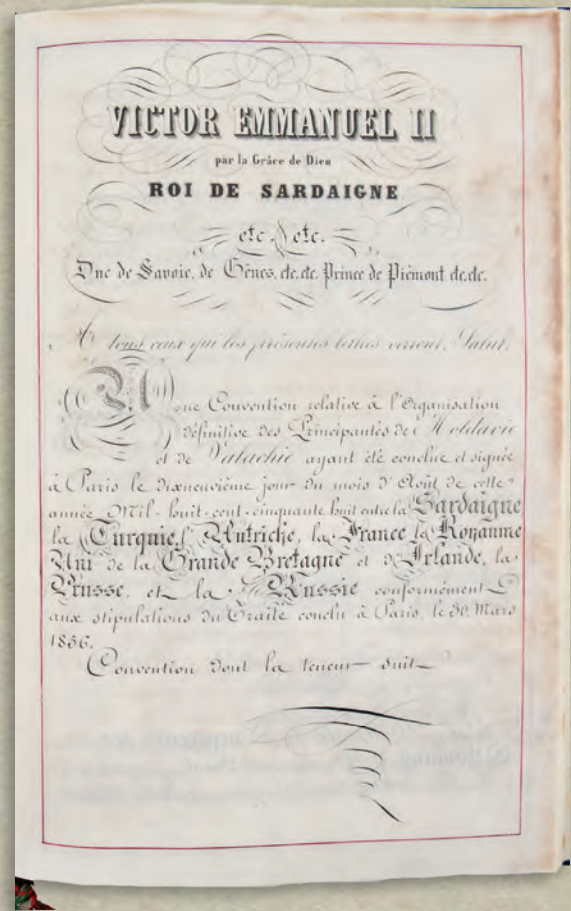 VICTOR EMMANUEL II
par la Grâce de Dieu
ROI DE SARDAIGNE
etc. etc.
Duc de Savoie, de Gênes, etc. etc. Prince de Piémont etc. etc.
A tous ceux qui les présentes lettres verront, Salut.
Une Convention relative à l'Organisation
définitive des Principautés de Moldavie
et de Valachie ayant été conclue et signée
à Paris le dixneuvième jour du mois d'Août de cette
année Mil-huit-cent-cinquante huit entre la Sardaigne
la Turquie, l'Autriche, la France le Royaume
Uni de la Grande Bretagne et d'Irlande, la
Prusse, et la Russie conformément
aux stipulations du Traité conclu à Paris, le 30, Mars
1856.
Convention dont la teneur suit